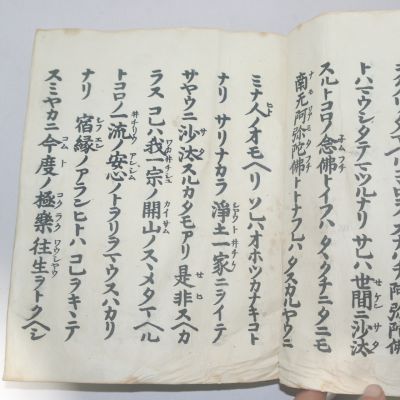 阿弥陀佛
トハマウシタテマツルナリ サレハ世間ニ沙汰
スルトコロノ念佛トイフハ タヽクチニタニモ
南无阿弥陀佛トトナフレハ タスカルヤウニ
ミナ人ノオモヘリ ソレハオホツカナキコト
ナリ サリナカラ 淨土一家ニヲイテ
サヤウニ沙汰スルカタモアリ 是非スヘカ
ラス コレハ我一宗ノ開山ノスヽメタマヘル
トコロノ一流ノ安心ノトヲリヲマウスハカリ
ナリ 宿縁ノアランヒトハ コレヲキヽテ
スミヤカニ今度ノ極樂往生ヲトクヘシ